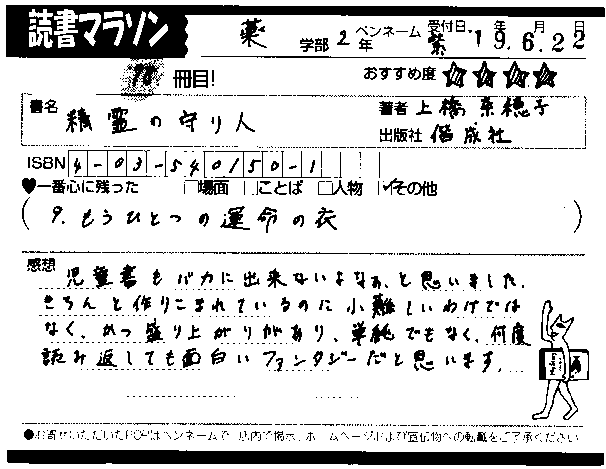 読書マラソン 薬 学部 2年 ペンネーム 紫 受付日 '19年 6月 22日
冊目! おすすめ度 ☆☆☆☆
書名 精霊の守り人 著者 上橋菜穂子
出版社 偕成社
ISBN 4-03-540150-1
♥一番心に残った □場面 □ことば □人物 ✓その他
( 9. もうひとつの運命の衣 )
感想 児童書もバカに出来ないよなぁ、と思いました。
きちんと作りこまれているのに小難しいわけでは
なく、かつ盛り上がりがあり、単純でもなく、何度
読み返しても面白いファンタジーだと思います。
●お寄せいただいたPOPはペンネームで、店内で掲示、ホームページおよび宣伝物への転載をご了承ください